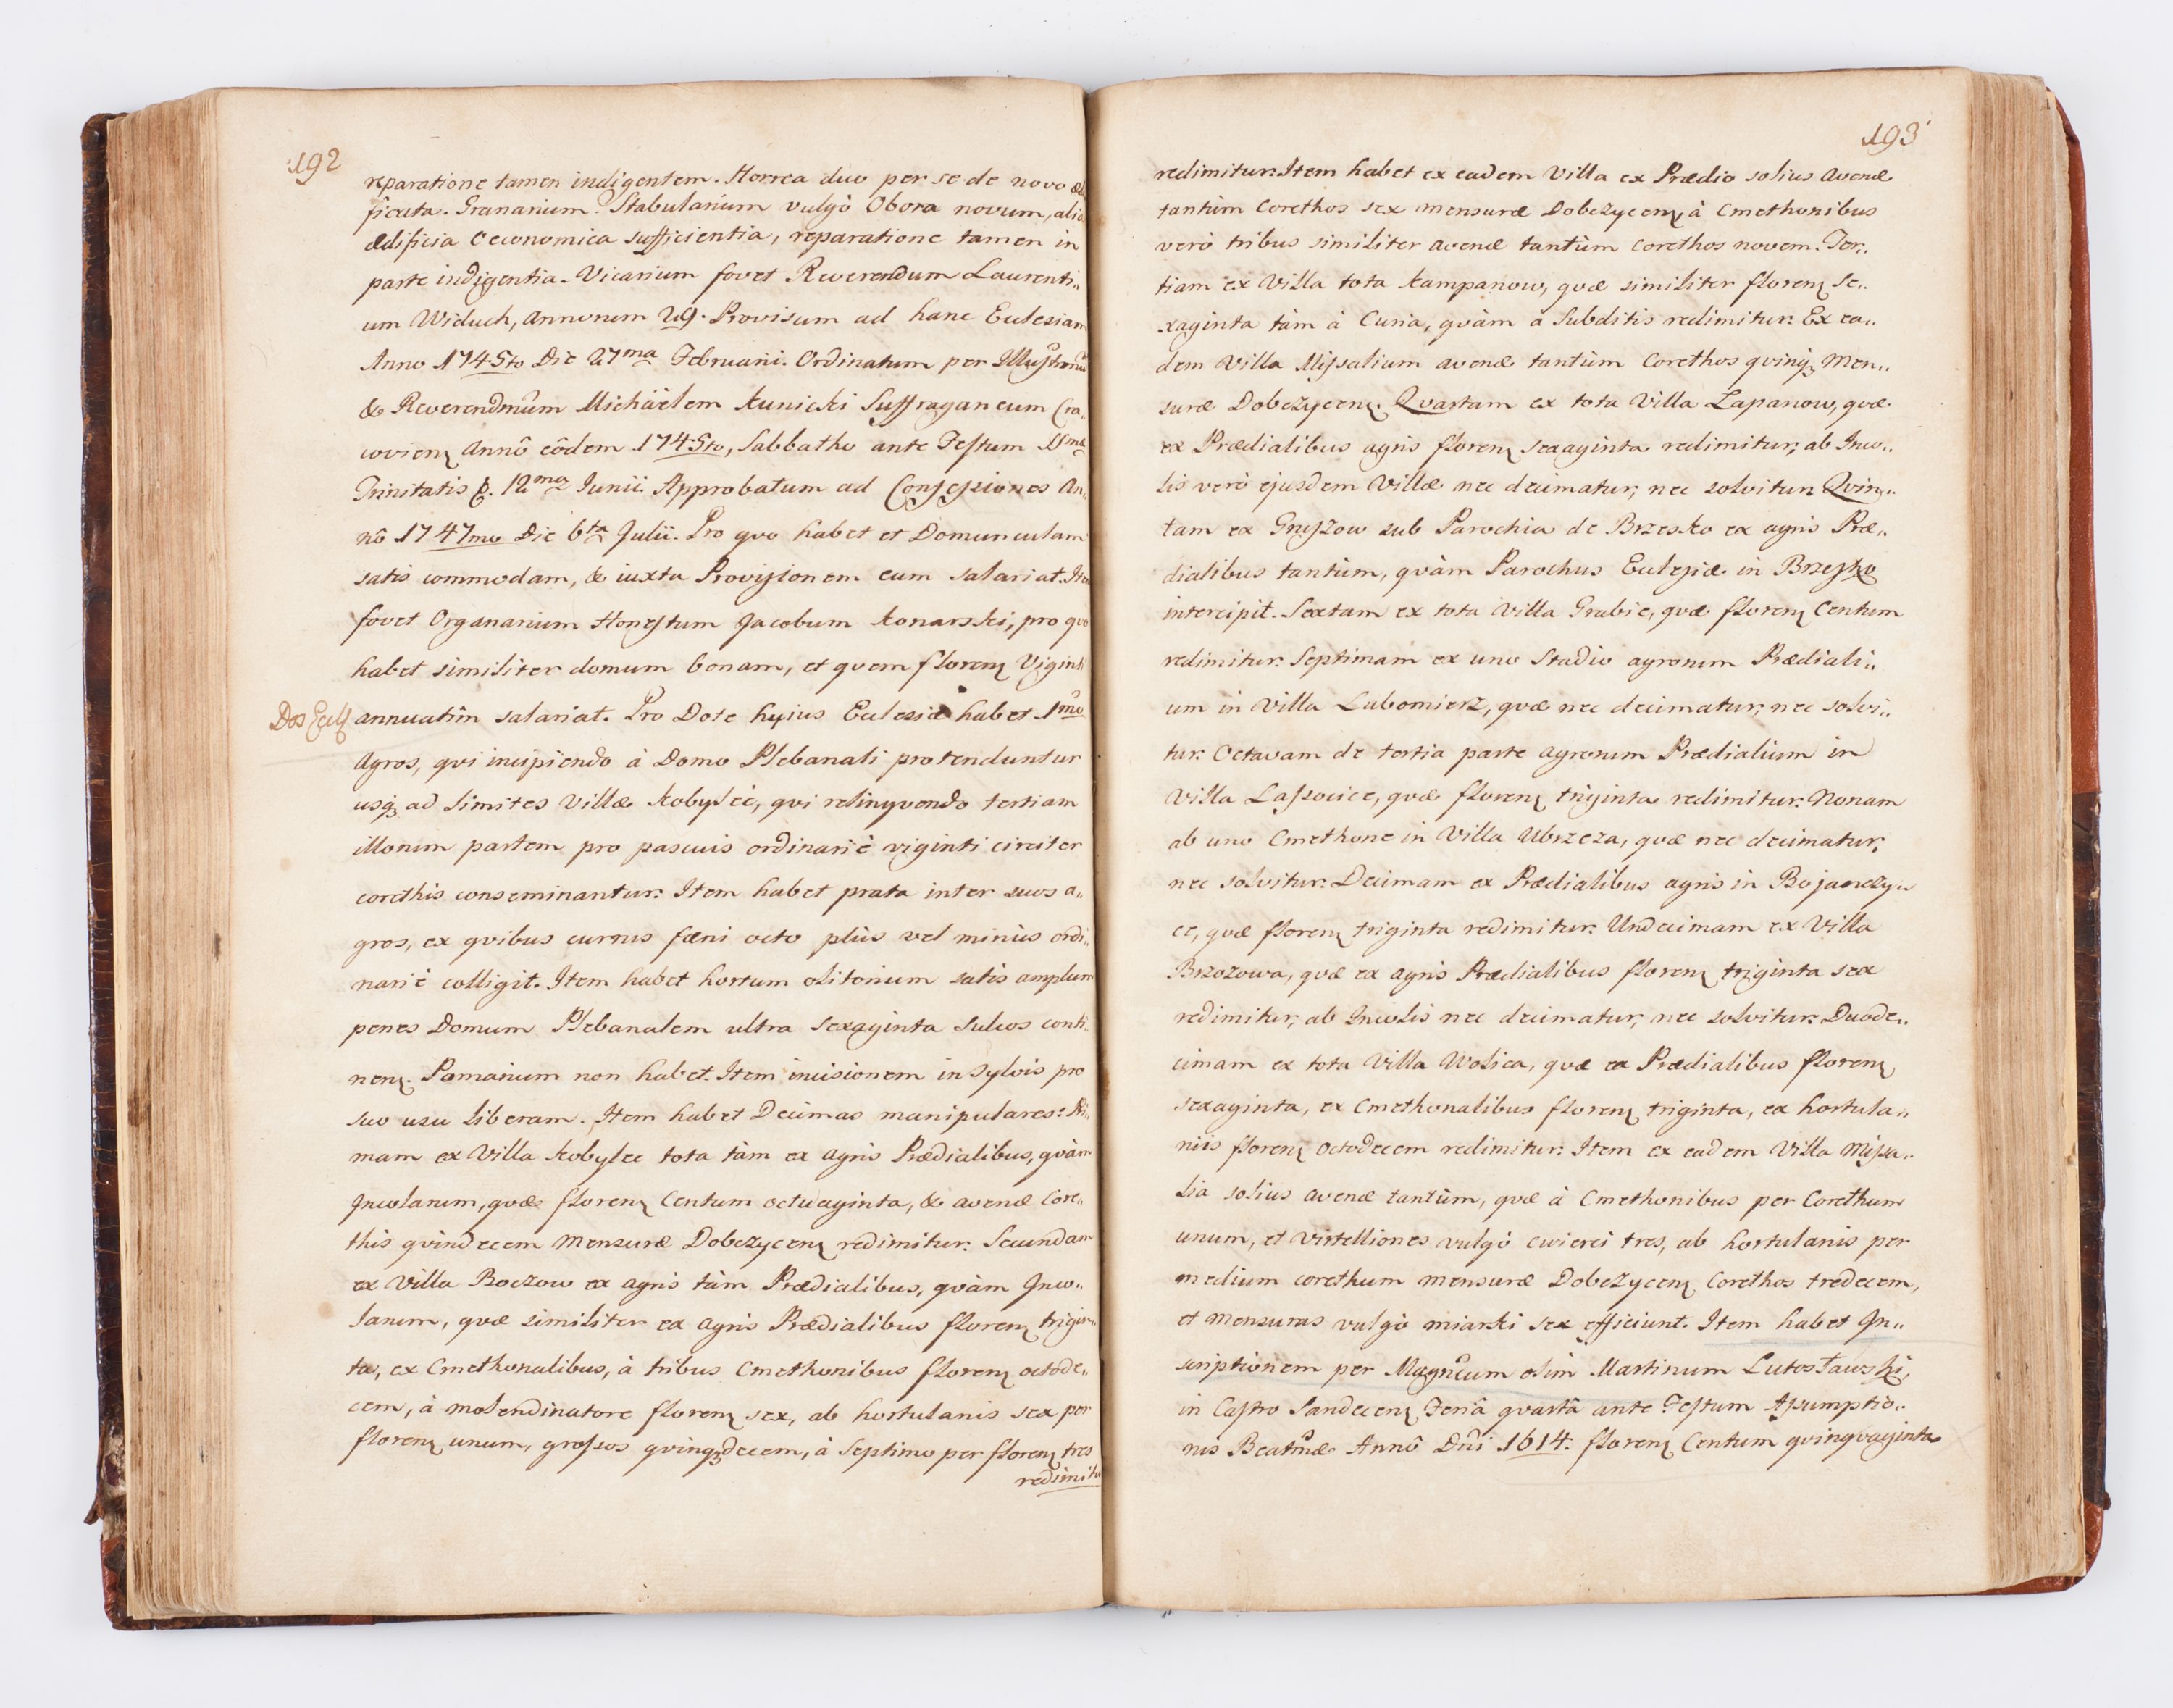 192
reparatione tamen indigentem. Horrea duo per se de novo ædi
ficata. Granarium. Stabularium vulgò Obora novum, alia
ædificia Oeconomica sufficientia, reparatione tamen in
parte indigentia. Vicarium fovet Reverendum Laurenti„
um Widuch, annorum 29. Provisum ad hanc Ecclesiam
Anno 1745to Die 27ma Februarii. Ordinatum per Illustrmũ
& Reverendmũm Michäelem Kunicki Suffraganeum Cra„
coviens Annô eôdem 1745to, Sabbatho ante Festum SSmæ
Trinitatis 12ma Junii. Approbatum ad Confessiones An„
nô 1747mo Die 6ta Julii. Pro quo habet et Domunculam
satis commodam, & iuxta Provisionem eum salariat. Item
fovet Organarium Honestum Jacobum Konarski, pro quo
habet similiter domum bonam, et quem floren Viginti
Dos Eccls annuatim salariat. Pro Dote hujus Eclesiæ habet 1mo
Agros, qui incipiendo à Domo Plebanali protenduntur
usq3 ad limites Villæ Kobyléc, qui relinqvendo tertiam
illorum partem pro pascuis ordinariè viginti circiter
corethis conseminantur: Item habet prata inter suos a„
gros, ex qvibus currus fæni octo plùs vel minùs ordi„
nariè colligit. Item habet hortum olitorium satis amplum
penes Domum Plebanalem ultra sexaginta Sulcos conti„
nen. Pomarium non habet. Item incisionem in Sylvis pro
suo usu liberam. Item habet Decimas manipulares: Pri„
mam ex Villa Kobylec tota tàm ex agris Prædialibus, qvàm
Incolarum, qvæ floren Centum octuaginta, & avenæ Core„
this qvindecem Mensuræ Dobczycen redimitur: Secundam
ex Villa Boczow ex agris tàm Prædialibus, qvàm Inco„
larum, qvæ similiter ex agris Prædialibus floren trigin„
ta, ex Cmethonalibus, à tribus Cmethonibus floren octode„
cem, à molendinatore floren sex, ab hortulanis sex per
floren unum, grossos qvinq3decem, à Septimo per floren tres
redimitu
193
redimitur: Item habet ex eadem Villa ex Prædio solius Avenæ
tantùm Corethos sex mensuræ Dobczycen à Cmethonibus
verò tribus similiter avenæ tantùm corethos novem. Ter„
tiam ex Villa tota Kampanow, qvæ similiter floren Se„
xaginta tàm à Curia, qvàm a Subditis redimitur: Ex ea„
dem Villa Missalium avenæ tantùm Corethos qvinq3 Men„
suræ Dobczycen. Qvartam ex tota Villa Lapanow, qvæ
ex Prædialibus agris floren sexaginta redimitur, ab Inco„
lis verò ejusdem Villæ nec decimatur, nec solvitur: Qvin„
tam ex Gruszow sub Parochia de Brzesko ex agris Præ„
dialibus tantùm, qvàm Parochus Ecclesiæ in Brzesko
intercipit. Sextam ex tota Villa Grabie, qvæ floren Centum
redimitur: Septimam ex uno Stadio agrorum Prædiali„
um in Villa Lubomierz, qvæ nec decimatur, nec solvi„
tur: Octavam de tertia parte agrorum Prædialium in
Villa Lassocice, qvæ floren triginta redimitur: Nonam
ab uno Cmethone in Villa Ubrzeza, qvæ nec decimatur,
nec solvitur: Decimam ex Prædialibus agris in Bojanczy„
ce, qvæ floren triginta redimitur: Undecimam ex Villa
Brzozowa, qvæ ex agris Prædialibus floren triginta sex
redimitur, ab Incolis nec decimatur, nec solvitur: Duode„
cimam ex tota Villa Wolica, qvæ ex Prædialibus floren
sexaginta, ex Cmethonalibus floren triginta, ex hortula„
niis floren octodecem redimitur: Item ex eadem Villa Missa„
lia solius avenæ tantùm, qvæ à Cmethonibus per Corethum
unum, et Virtelliones vulgò cwierci tres, ab hortulanis per
medium corethum mensuræ Dobczycen Corethos tredecem,
et Mensuras vulgò miarki sex efficiunt. Item habet In„
scriptionem per Magnĩcum olim Martinum Lutosławski,
in Castro Sandecen Feriâ qvartâ ante Festum Assumptio„
nis Beatmæ Annô Dnĩ 1614. floren Centum qvinqvaginta